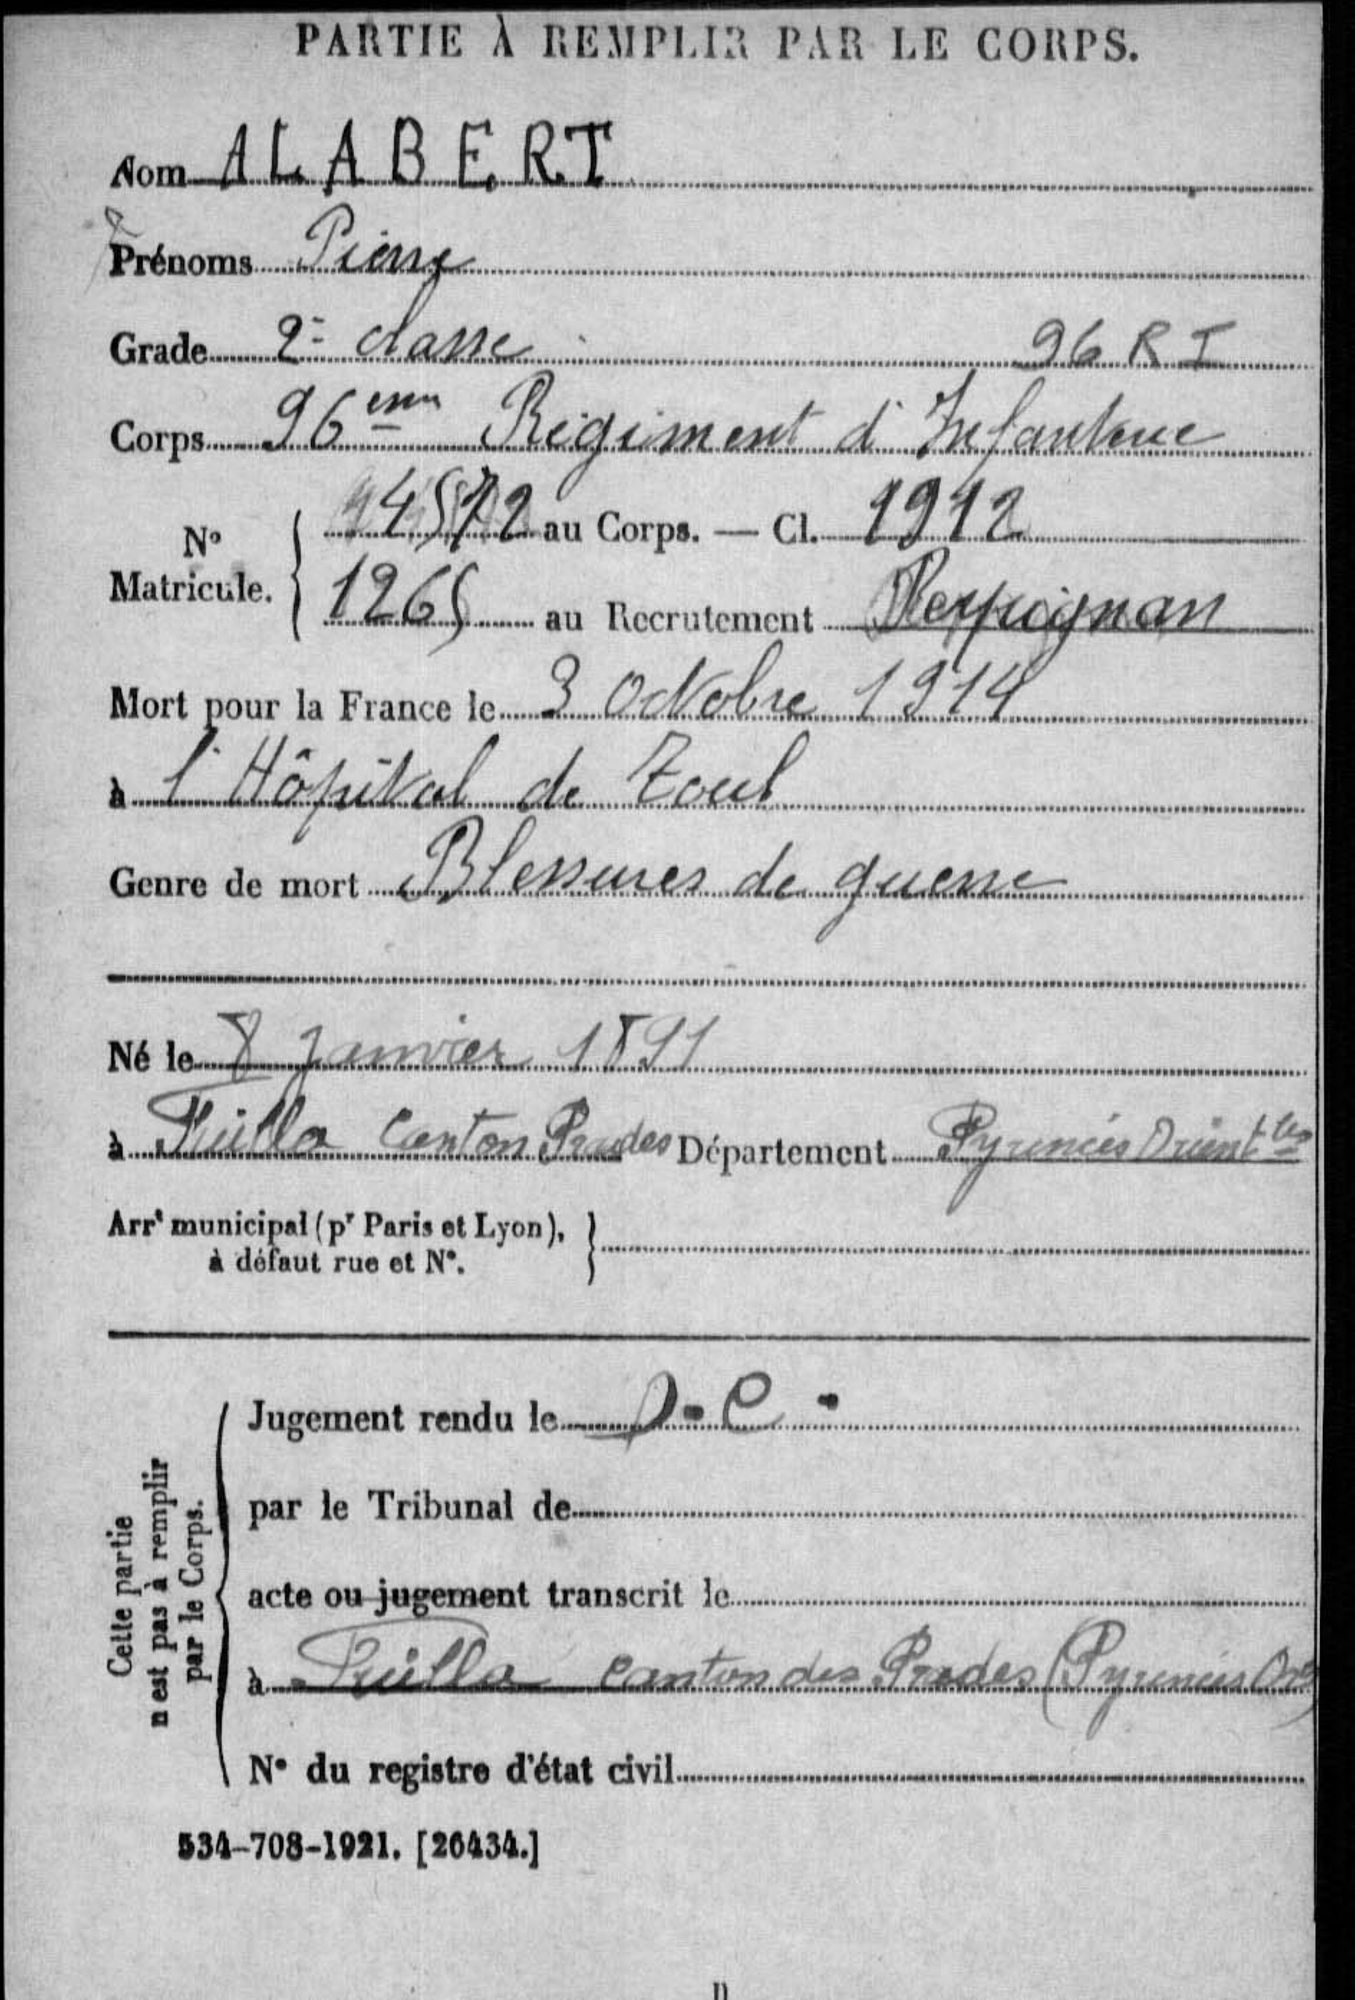 PARTIE À REMPLIR PAR LE CORPS.
Nom ALABERT
Prénoms Pierre
Grade 2e classe 96 R I
Corps 96eme Régiment d'Infanterie
N° Matricule. { 4572 au Corps. — Cl. 1912
1265 au Recrutement Perpignan
Mort pour la France le 3 Octobre 1914
à l'Hôpital de Toul
Genre de mort Blessures de guerre
Né le 8 Janvier 1891
à Fuilla Canton Prades Département Pyrénées Orientles
Arrt municipal (pr Paris et Lyon),
à défaut rue et N°.
Cette partie
n'est pas à remplir
par le Corps.
Jugement rendu le
par le Tribunal de
acte ou jugement transcrit le
à Fuilla Canton des Prades (Pyrénées Ores)
N° du registre d'état civil
534-708-1921. [26434.]